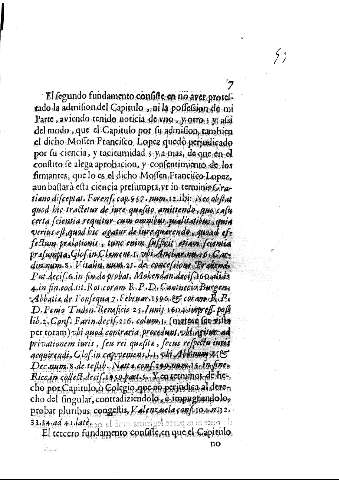 7
El segundo fundamento consiste en no aver protes-
tado la admission del Capitulo, ni la possession de mi
Parte, aviendo tenido noticia de vno, y otro; y assi
del modo, que el Capitulo por su admission, tambien
el dicho Mossen Francisco Lopez quedò perjudicado
por su ciencia, y taciturnidad; y a mas, de que en el
constito se alega aprobacion, y consentimiento de los
firmantes, que lo es el dicho Mossen Francisco Lopez,
aun bastarà esta ciencia presumpta, vt in terminis Gra-
tiano discept at. Forens. cap. 957. num. 12. ibi: Nec obstat
quod hic tractetur de iure quæsito amittendo, quo casu
certa scientia requiritur cum omnibus qualitatibus, quia
verius est, quod hic agatur de iure quærendo, quoad ef-
fectum prælationis, tunc enim sufficit etiam scientia
præsumpta, Glos. in Clement. 1. vbi
din. num. 8. Vitalin. num. 21. de concessione Præbend.
Put. decis. 6. in fin. de probat.
4. in fin. cod. tit. Rot. coram R. P. D. Cantuccio Burgen.
Abbatia, de Fonsequa 7. Februar. 1596. & coram R. P.
D. Penia 23. Iunij 1604. impress. post
lib. 2. Cons. Farin. decis. 226. colum. 1. (merece ser visto
per totam) vbi quod contraria procedunt, vbi agitur ad
privationem iuris, seu rei quæsitæ, secus respectu iuris
acquirendi, Glos. in cap. vbi Abb. num. 7. &
Dec. num. 8. de restit.
Y en terminos de he-
cho por Capitulo, ò Colegio, que no perjudica al dere-
cho del singular, contradiziendolo, è impugnandolo,
probat pluribus congestis, Valenzuela cons. 104. n. 32.
33. 34. ad 41. latè.
El tercero fundamento consiste, en que el Capitulo
no